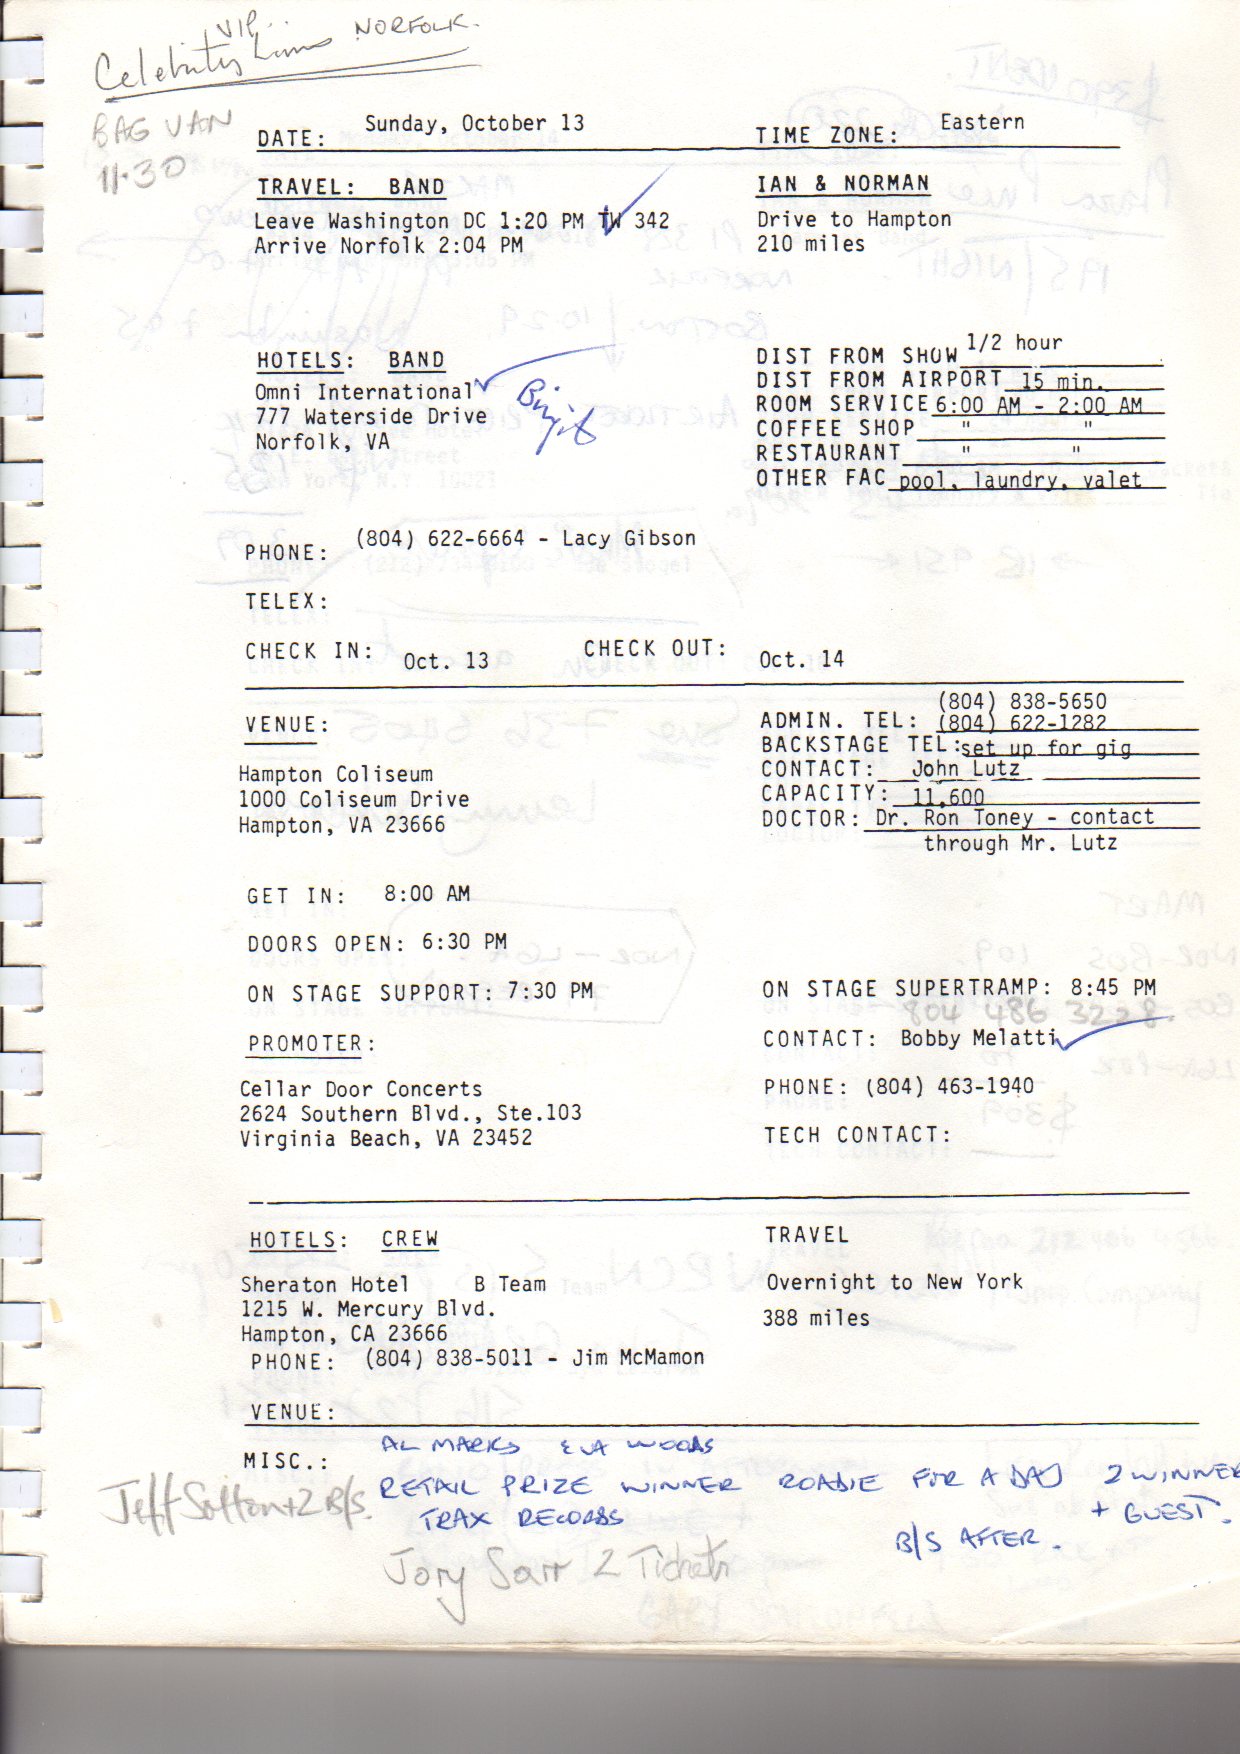 VIP. NORFOLK.
Celebrity Limo
BAG VAN
11.30
DATE: Sunday, October 13 TIME ZONE: Eastern
TRAVEL: BAND IAN & NORMAN
Leave Washington DC 1:20 PM TW 342 Drive to Hampton
Arrive Norfolk 2:04 PM 210 miles
HOTELS: BAND DIST FROM SHOW 1/2 hour
Omni International DIST FROM AIRPORT 15 min.
777 Waterside Drive ROOM SERVICE 6:00 AM - 2:00 AM
Norfolk, VA COFFEE SHOP " "
RESTAURANT " "
OTHER FAC pool, laundry, valet
PHONE: (804) 622-6664 - Lacy Gibson
TELEX:
CHECK IN: Oct. 13 CHECK OUT: Oct. 14
(804) 838-5650
VENUE: ADMIN. TEL: (804) 622-1282
BACKSTAGE TEL: set up for gig
Hampton Coliseum CONTACT: John Lutz
1000 Coliseum Drive CAPACITY: 11,600
Hampton, VA 23666 DOCTOR: Dr. Ron Toney - contact
through Mr. Lutz
GET IN: 8:00 AM
DOORS OPEN: 6:30 PM
ON STAGE SUPPORT: 7:30 PM ON STAGE SUPERTRAMP: 8:45 PM
804 486 3228.
PROMOTER: CONTACT: Bobby Melatti
Cellar Door Concerts PHONE: (804) 463-1940
2624 Southern Blvd., Ste.103
Virginia Beach, VA 23452 TECH CONTACT:
HOTELS: CREW TRAVEL
Sheraton Hotel B Team Overnight to New York
1215 W. Mercury Blvd. 388 miles
Hampton, CA 23666
PHONE: (804) 838-5011 - Jim McMamon
VENUE:
MISC.: AL MARKS EVA WOODS
RETAIL PRIZE WINNER ROADIE FOR A DAY 2 WINNER
Jeff Sotton + 2 B/S. TRAX RECORDS + GUEST.
B/S AFTER.
Jory Sarr 2 Tickets